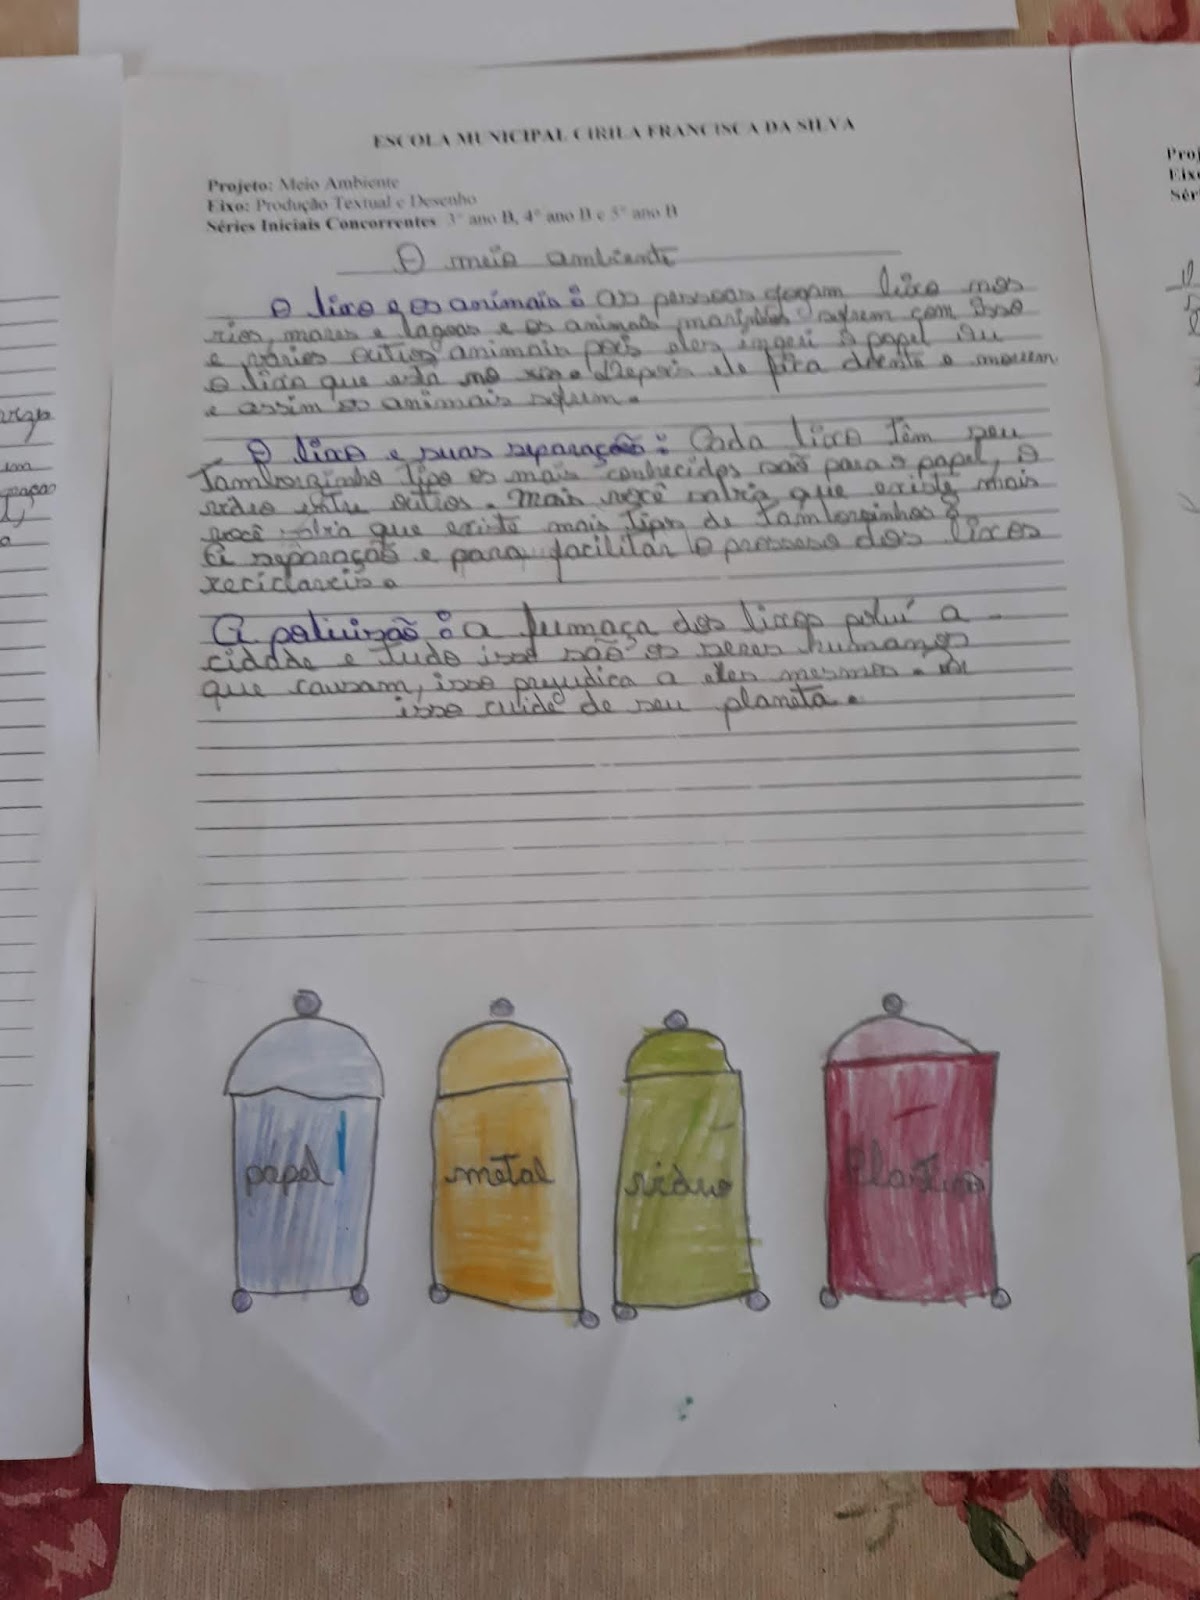 ESCOLA MUNICIPAL CIRILA FRANCISCA DA SILVA
Projeto: Meio Ambiente
Eixo: Produção Textual e Desenho
Séries Iniciais Concorrentes 3º ano B, 4º ano B e 5º ano B
O meio ambiente
O lixo e os animais: as pessoas jogam lixo nos
rios, mares e lagoas e os animais marinhos sofrem com isso
e vários outros animais pois eles ingeri o papel ou
o lixo que está no rio. Depois ele fica doente e morrem
e assim os animais sofrem.
O lixo e suas separação: Cada lixo têm seu
Tamborzinho tipo os mais conhecidos são para o papel, o
vidro entre outros. Mais você sabia que existe mais
você sabia que existe mais tipo de tamborzinhos?
A separação e para facilitar o processo dos lixos
reciclaveis.
A poluizão: a fumaça dos lixos poluí a
cidade e tudo isso são os seres humanos
que causam, isso prejudica a eles mesmos.
isso cuide de seu planeta.
papel
metal
vidro
Plastico
Proj
Eixo
Sér